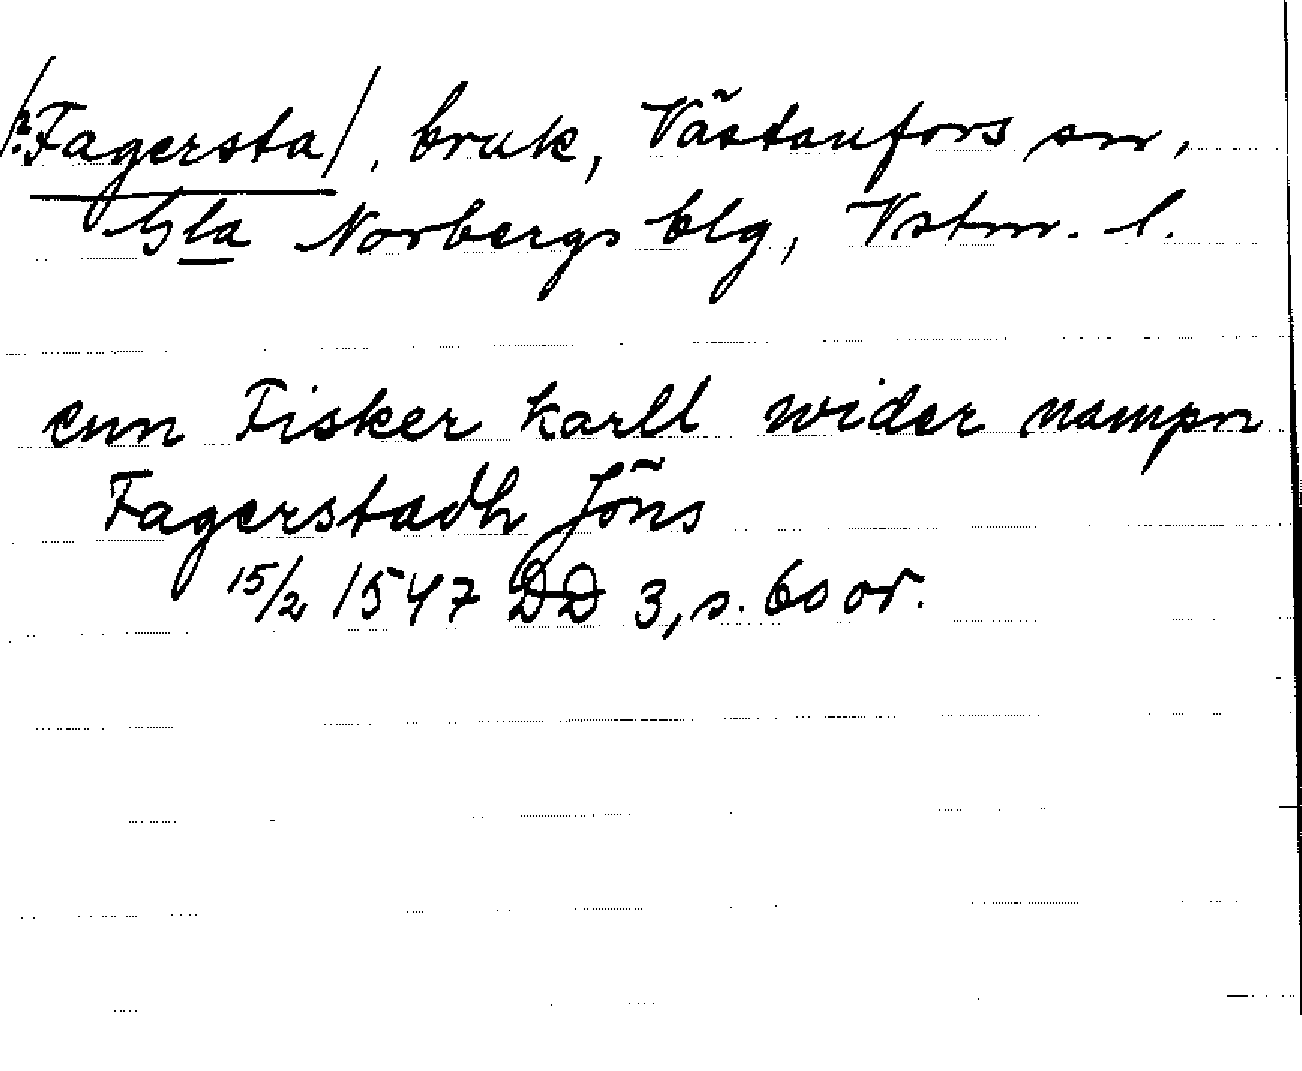 /?Fagersta/, bruk, Västanfors sn,
Gla Norbergs blg, Vstm. l.
enn Fisker karll wider nampn
Fagerstadh Jöns
15/2 1547 DD 3, s. 60 or.